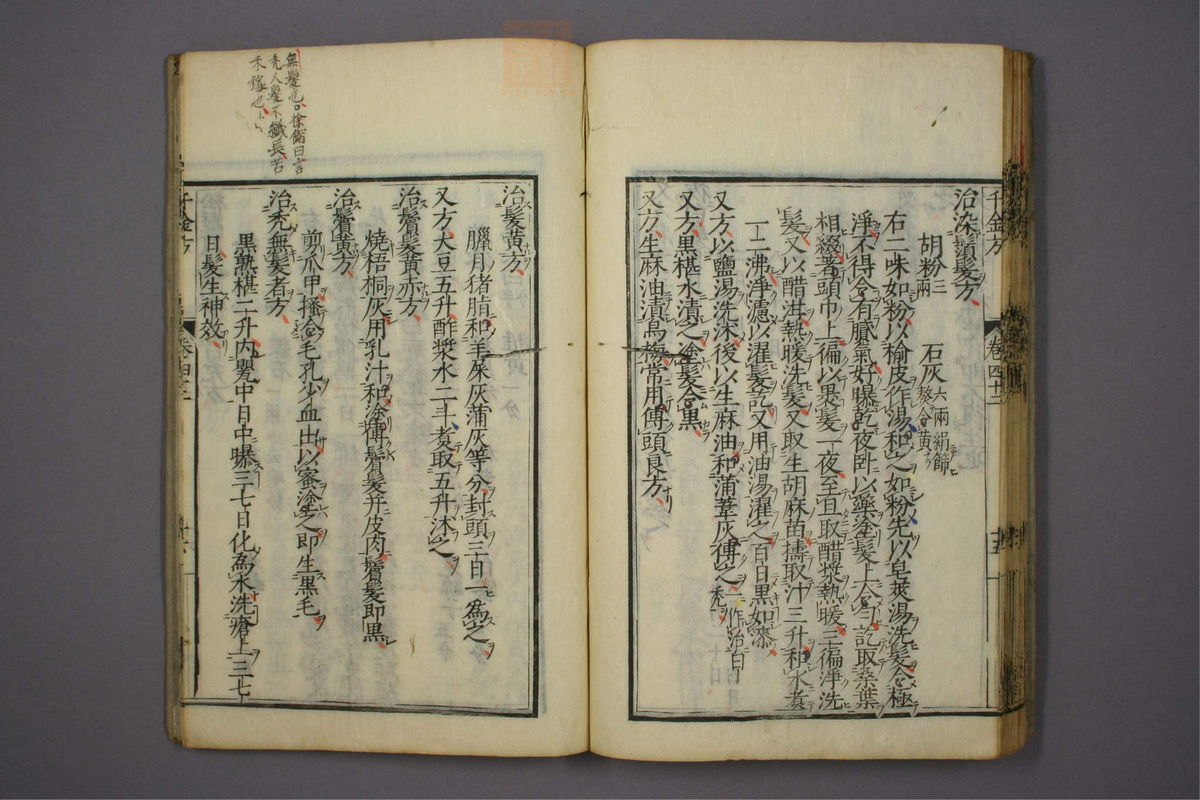 千金方 卷四十二 十五
治染鬚髮方
胡粉三兩 石灰六兩絹篩熬令黃
右二味如粉以榆皮作湯和之如粉先以皂莢湯洗髮令極
淨不得令有膩氣好曝乾夜臥以藥塗髮上令勻訖取桑葉
相綴著頭巾上徧以裹髮一夜至旦取醋漿熱暖三徧淨洗
髮又以醋泔熱暖洗髮又取生胡麻苗擣取汁三升和水煮
一二沸淨濾以濯髮訖又用油湯濯之百日黑如漆
又方以鹽湯洗沐後以生麻油和蒲葦灰傅之一作治白禿
又方黑椹水漬之塗髮令黑
又方生麻油漬烏梅常用傅頭良方
無髮也徐鍇曰言
禿人髮不纖長若
禾稼也
治髮黃方
臘月猪脂和羊屎灰蒲灰等分封頭三日一爲之
又方大豆五升酢漿水二斗煮取五升沐之
治鬢髮黃赤方
燒梧桐灰用乳汁和塗傅鬢髮并皮肉鬢髮即黑
治鬢黃方
剪爪甲搔令毛孔少血出以蜜塗之即生黑毛
治禿無髮者方
黑熟椹二升內甖中日中曝三七日化爲水洗瘡上三七
日髮生神效
千金方 卷四十二 十六